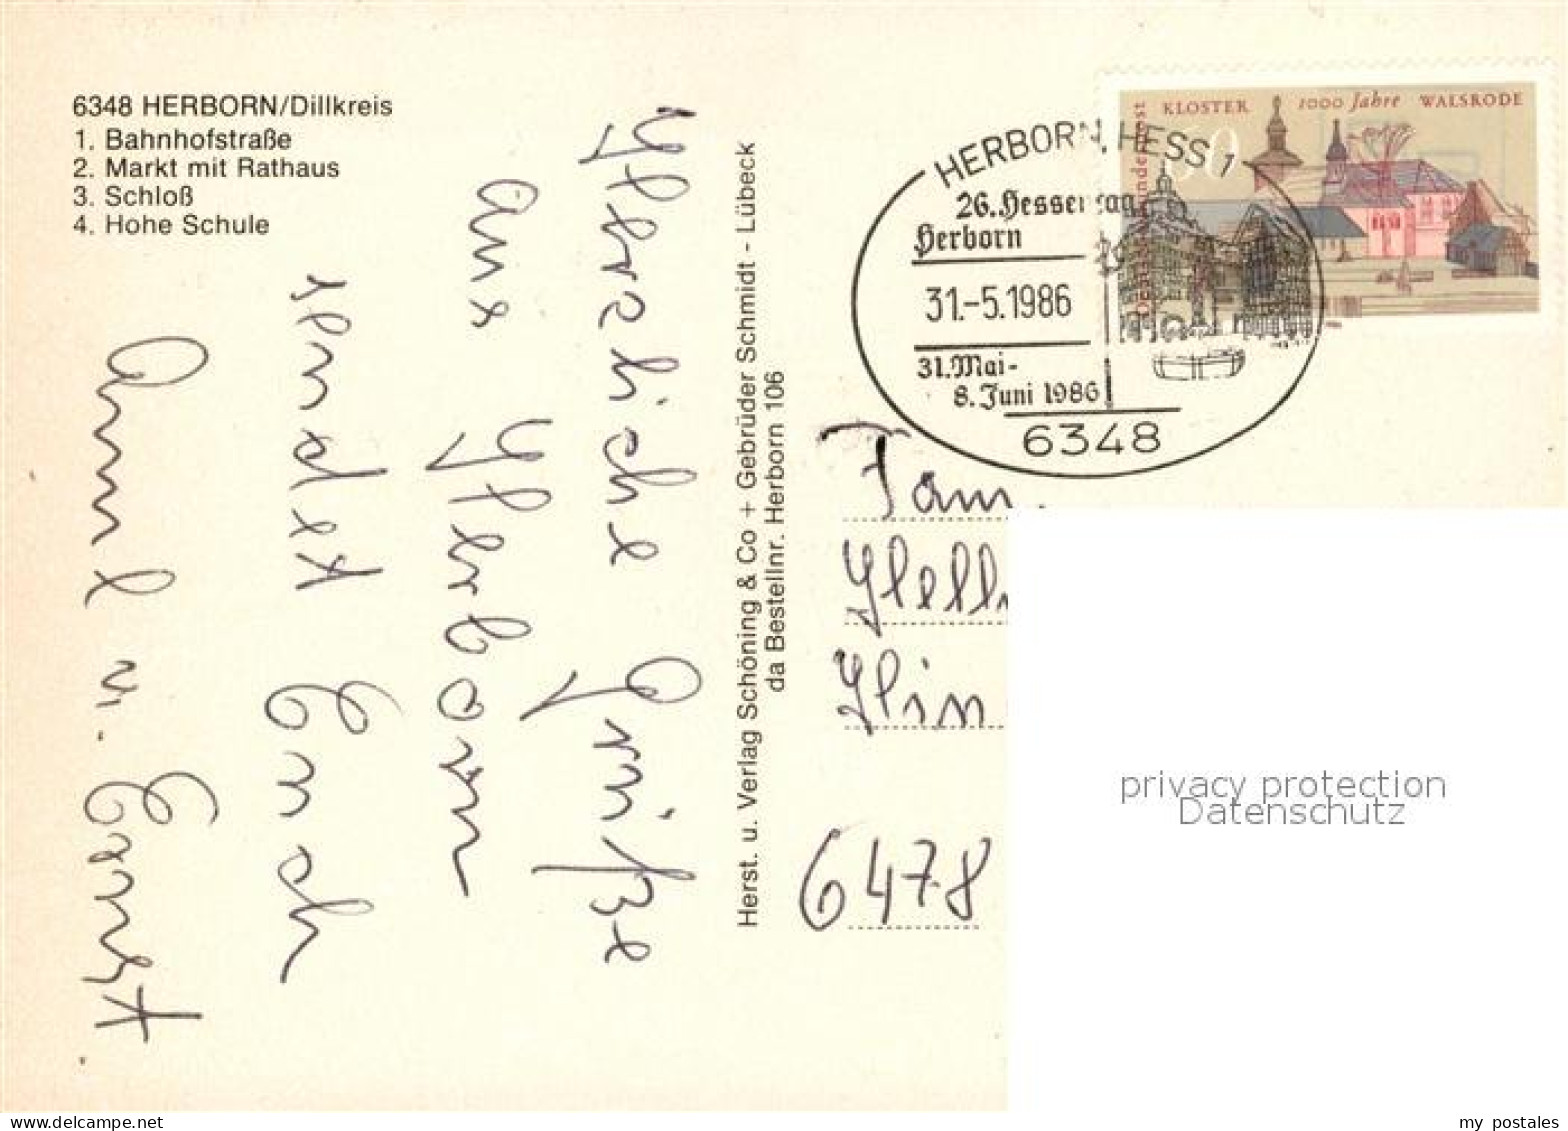 6348 HERBORN/Dillkreis
1. Bahnhofstraße
2. Markt mit Rathaus
3. Schloß
4. Hohe Schule
Herzliche Grüße
aus Herborn
sendet Euch
u. Ernst
Herst. u. Verlag Schöning & Co + Gebrüder Schmidt - Lübeck
da Bestellnr. Herborn 106
KLOSTER 1000 Jahre WALSRODE
HERBORN, HESS 1
26. Hessentag
Herborn
31.-5.1986
31. Mai-
8. Juni 1986
6348
Fam.
6478
privacy protection
Datenschutz
my postales